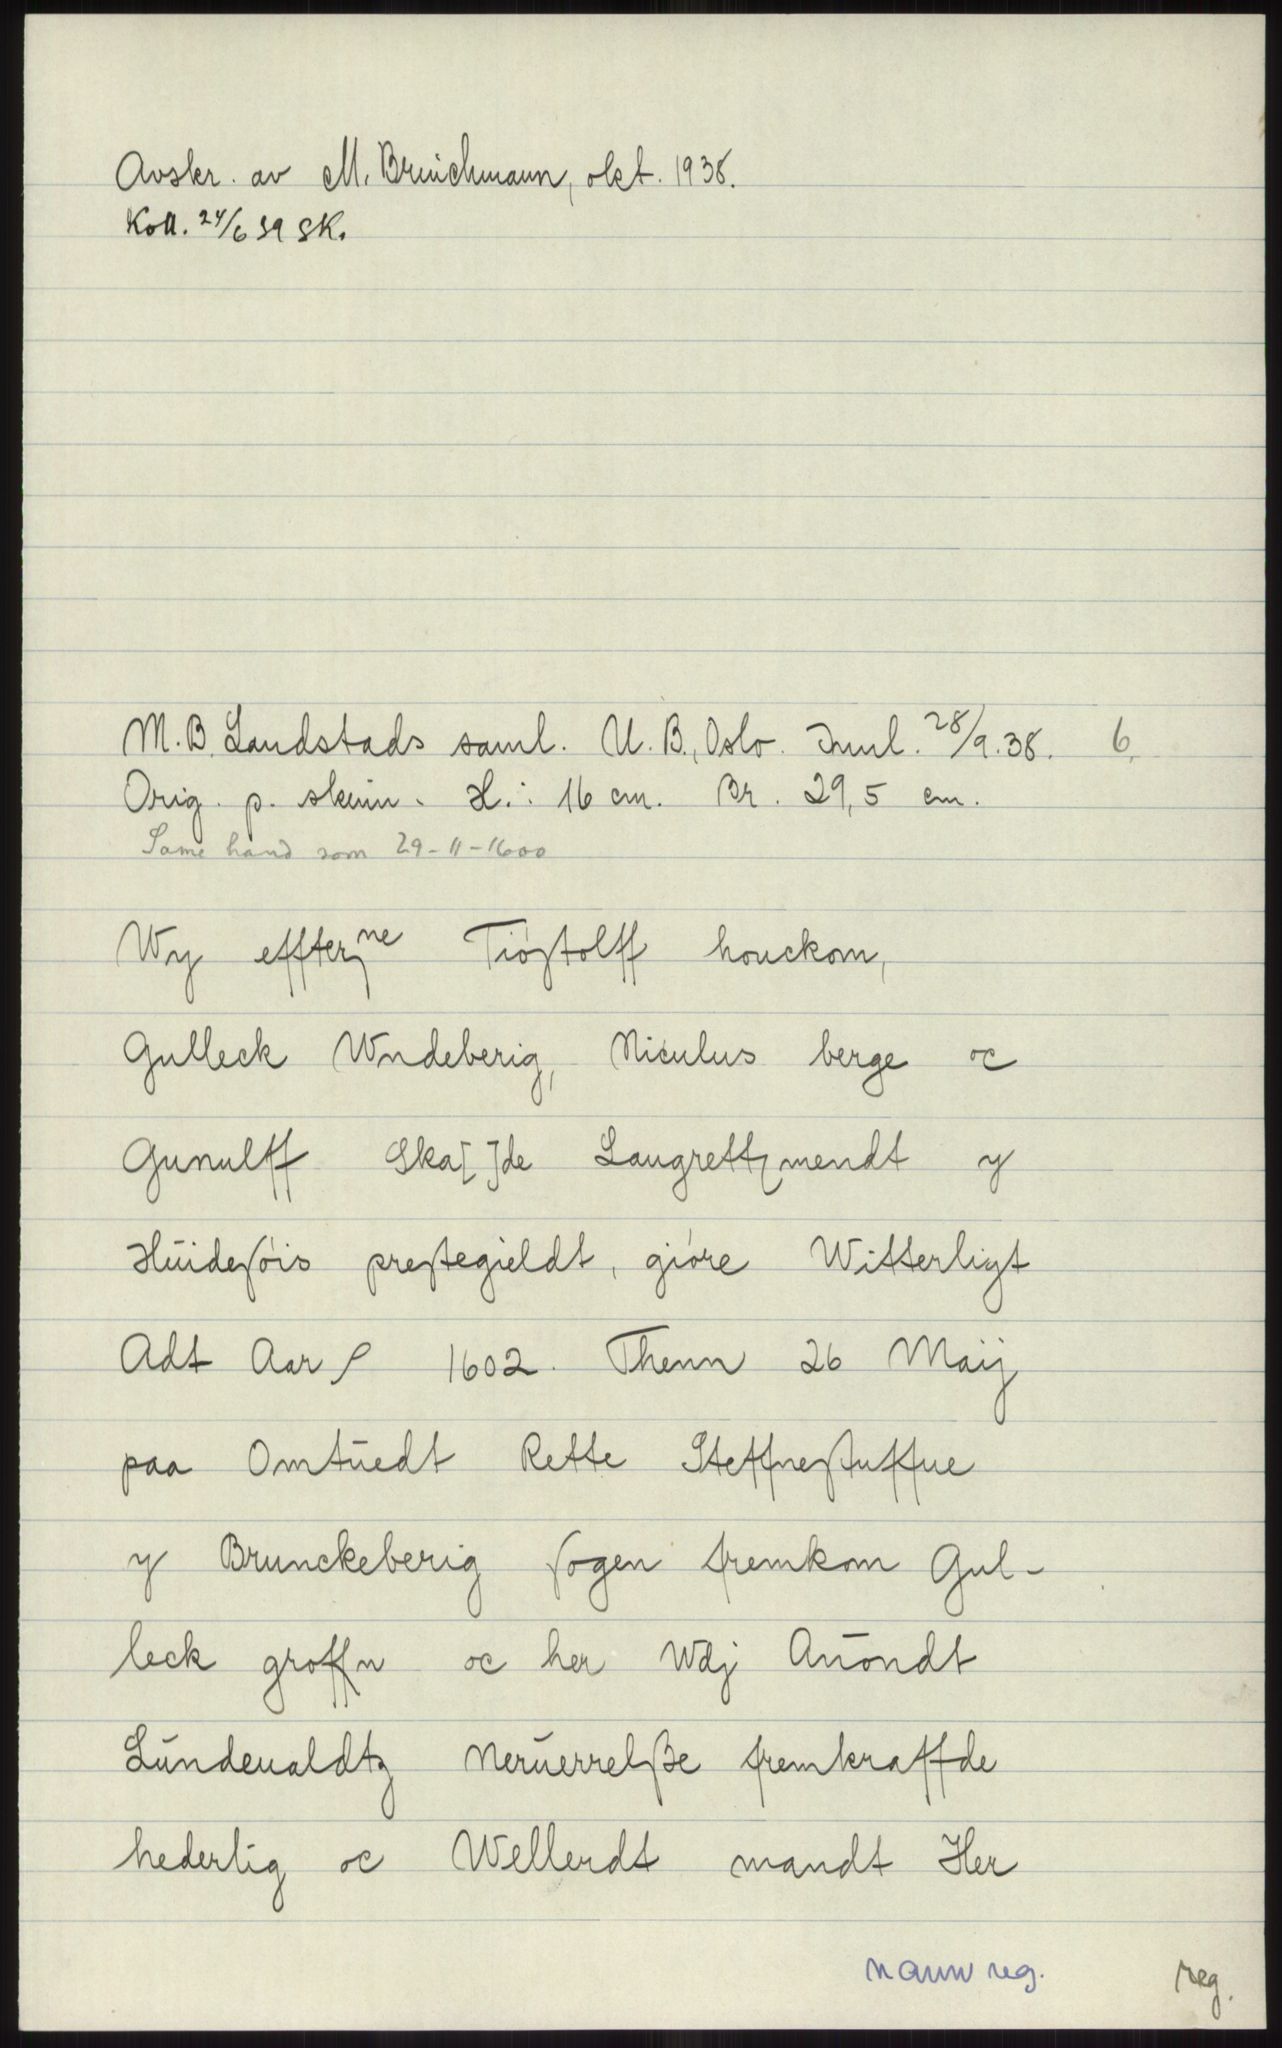 Avskr. av M. Brinchmann, okt. 1938.
Koll. 24/6 39 SK.
M. B. Landstads saml. U. B., Oslo. Innl. 28/9.38. 6.
Orig. p. skinn. H.: 16 cm. Br. 29,5 cm.
Same hand som 29-11-1600
Wy effterne Tiøstolff houckom,
Gulleck Wndeberig, Niculus berge oc
Gunulff Ska[ ]de Laugrettzmendt y
Huidesøis prestegieldt, giøre Witterligt
Adt Aar 1602. Thenn 26 Maij
paa Omtuedt Rette Steffnestuffue
y Brunckeberig sogen fremkom Gul-
leck groffn oc her Wdj Auondt
Lundeualdtz neruerrelße fremkraffde
hederlig oc Wellerdt mandt Her
namnreg. reg.